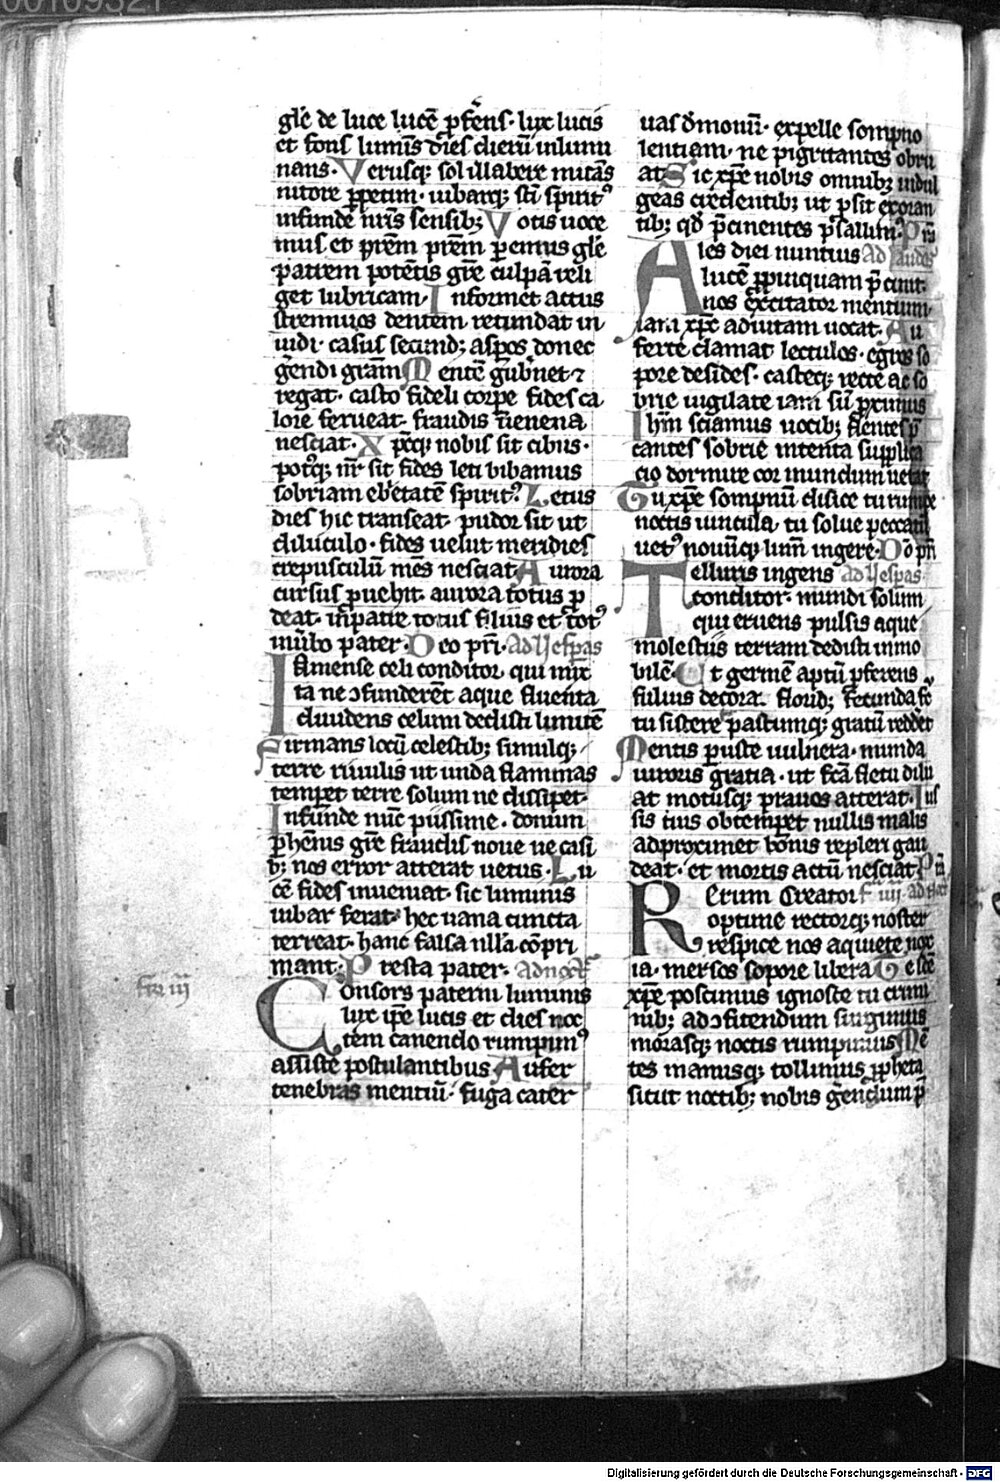 gle de luce lucē pferēs · lux lucis
et fons luminis dies dierū inlumi
nans · Verusq; sol illabere mitās
nitore ppetim · iubarq; sc̄i spirit⁹
infunde nr̄is sensib; Votis uoce
mus et pr̄em pr̄em pemnis gle
patrem potētis gr̄e culpā reli
get lubricam · Informet actus
strennuos dentem retundat in
uidi · casus secund; aspos donec
gerendi gram̄ Mentē gub̄net ⁊
regat · casto fideli corpe fides ca
lore ferueat · fraudis uenena
nesciat · Xp̄cq; nobis sit cibus ·
potq; nr̄ sit fides leti bibamus
sobriam ebietatē spirit⁹ Letus
dies hic transeat pudor sit ut
diluculo · fides uelut meridies
crepusculū mēs nesciat Aurora
cursus puehit aurora totus p
deat · in patre totus filius et tot⁹
in ubo pater · Deo pri · ad uespas
Inmense celi conditor qui mix
ta ne ɔfunderēt aque fluenta
diuidens celum dedisti limitē
Firmans locū celestib; simulq;
terre riuulis ut unda flammas
temperet terre solum ne dissipet ·
Infunde nūc piissime · donum
phēnis gr̄e fraudis noue ne casi
b; nos error atterat uetus · Lu
cē fides inueniat · sic luminis
iubar ferat · hec uana cuncta
terreat · hanc falsa nlla cōpri
mant · Presta pater · ad noct̄
fr̄ia iij
Consors paterni luminis
lux ip̄e lucis et dies noc
tem canendo rumpim⁹
assiste postulantibus Aufer
tenebras mentiū · fuga cater
uas dmonū · expelle sompno
lentiam · ne pigritantes obru
at Sic xp̄e nobis omnib; indul
geas credentib; ut psit exoran
tib; qd pcinentes psallim⁹ Pri
Ales diei nuntius ad laudes
lucē ppinquam pcinit
nos excitator mentium
iam xp̄c ad uitam uocat · Au
ferte clamat lectulos · egros so
pore desides · casteq; recte ac so
brie uigilate iam sū pximus
Ihm̄ sciamus uocib; flentes p
cantes sobrie intenta supplica
cio dormire cor mundum uetat
Tu xp̄e sompnū disice tu rumpe
noctis uincula · tu solue peccatū
uet⁹ nouūq; lum̄ ingere · Do pri
Telluris ingens ad uespas
conditor · mundi solum
qui eruens pulsis aque
molestiis terram dedisti inmo
bilē · Ut germē aptū pferens
fuluis decora florib; fecunda fc
tu sistere pastumq; gratū redder
Mentis puste uulnera · munda
uiroris gratia · ut fcā fletu dilu
at motusq; prauos atterat · Ius
sis tuis obtempet nullis malis
adproximet bonis repleri gau
deat · et mortis actū nesciat Pri
Rerum creator fr̄ iiij ad noct̄
optime rectorq; noster
respice nos a quiete nox
ia · mersos sopore libera Te sc̄e
xp̄e poscimus ignosce tu crimi
nib; ad ɔfitendum surgimus
morasq; noctis rumpimus Mē
tes manusq; tollimus ppheta
sicut noctib; nobis gerendum p
Digitalisierung gefördert durch die Deutsche Forschungsgemeinschaft - DFG